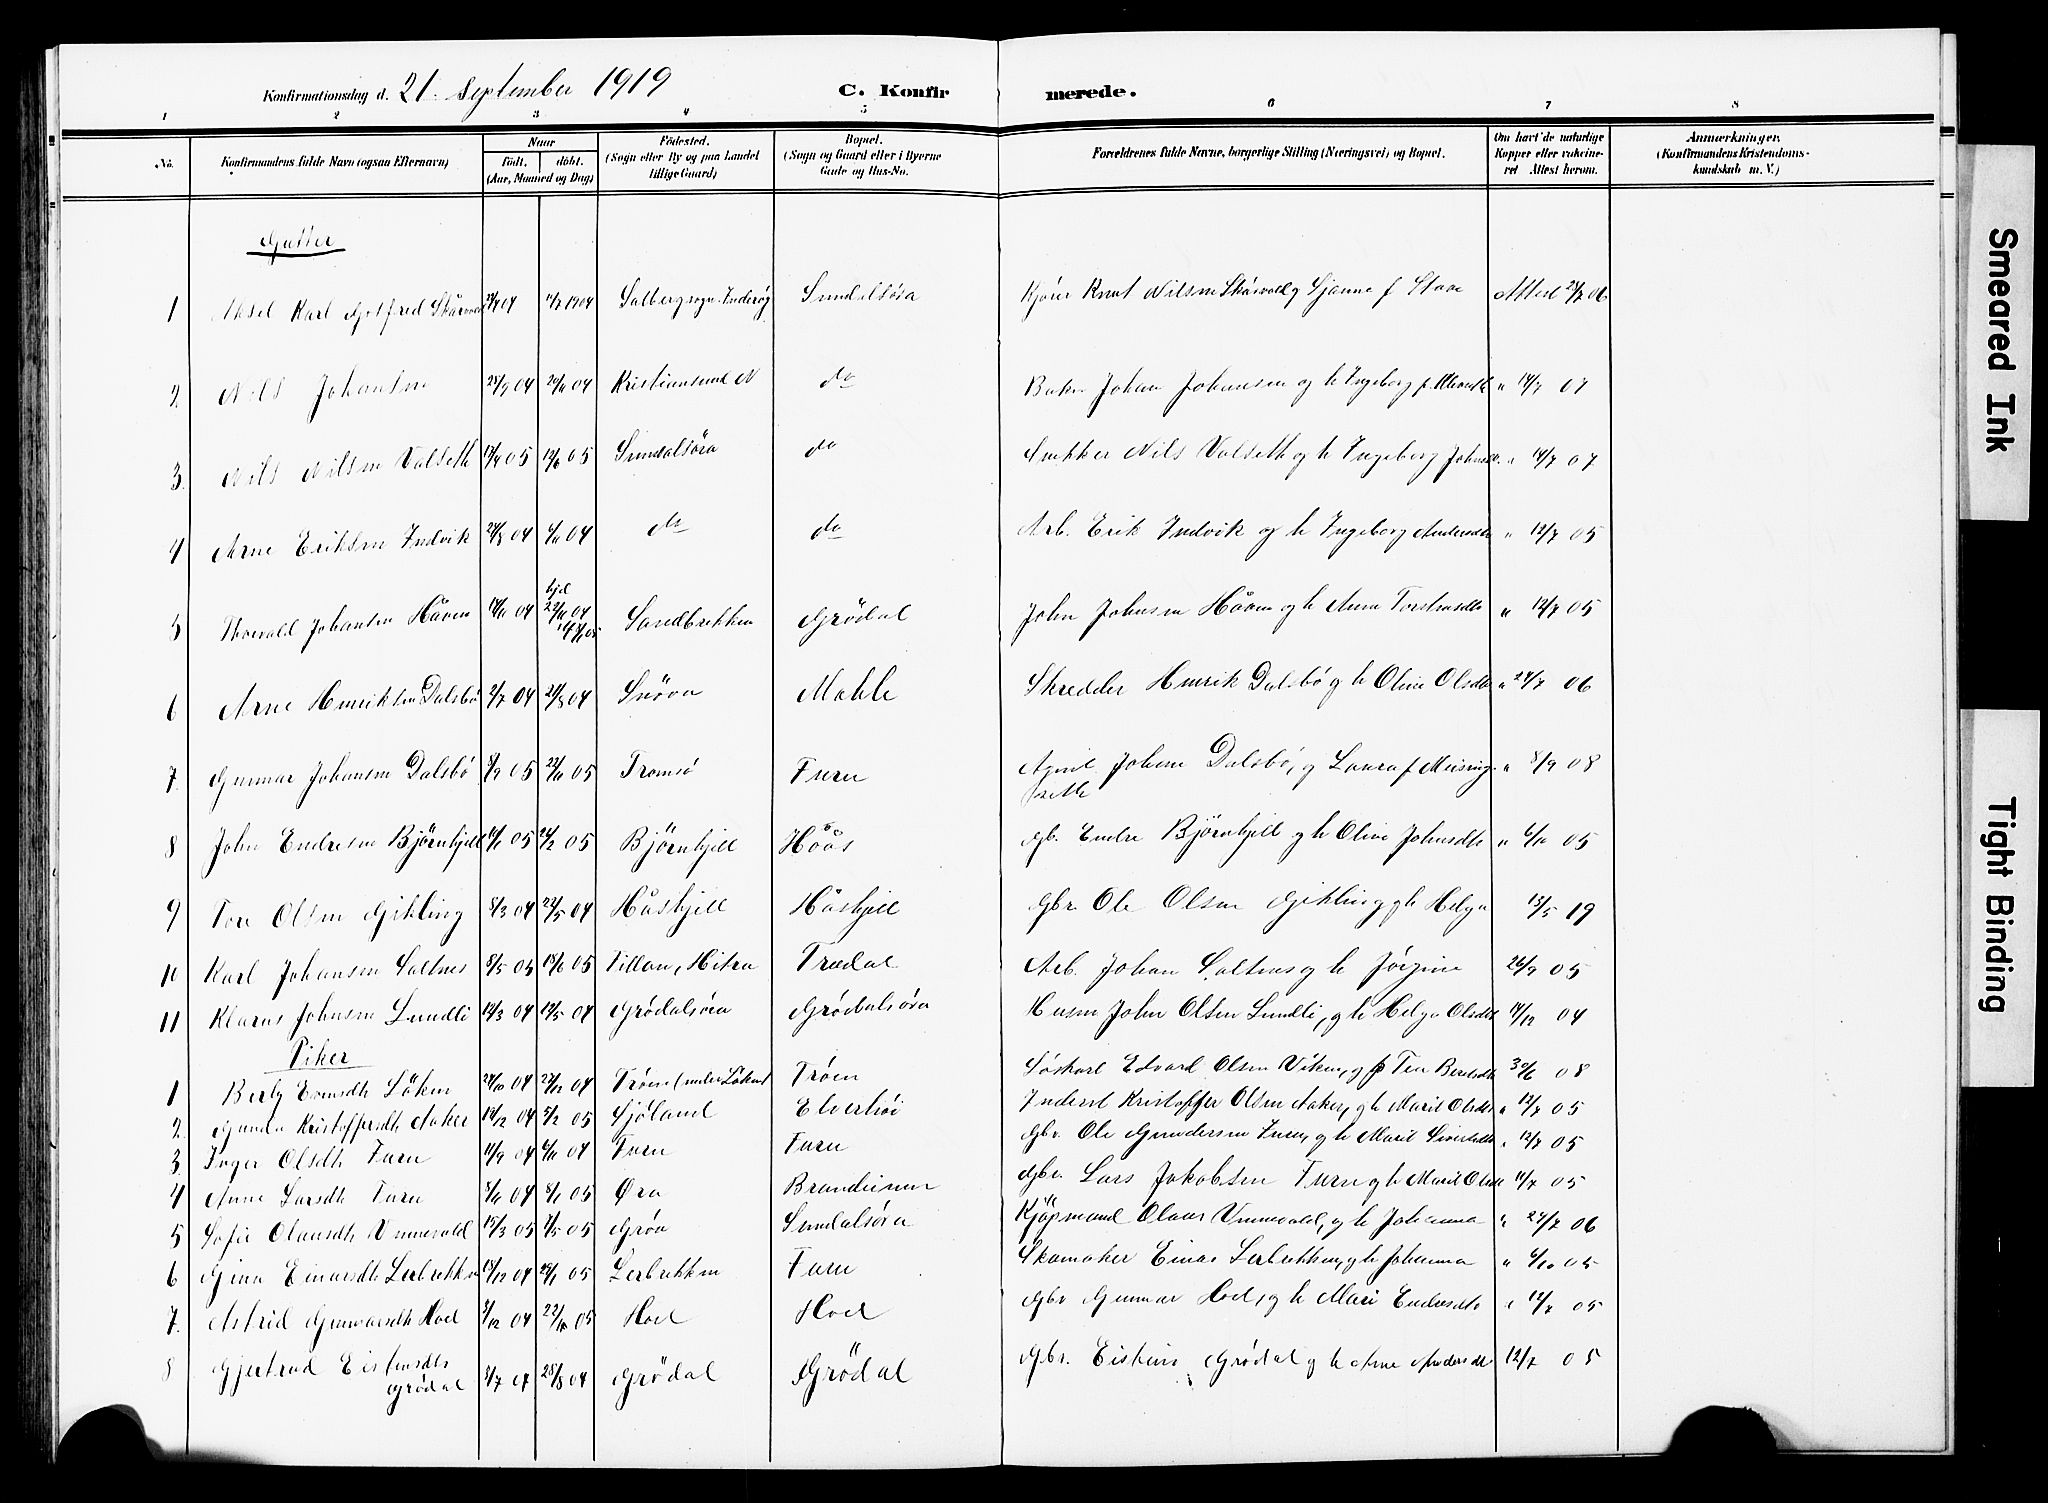 Konfirmationsdag d. 21. september 1919 C. Konfirmerede.
1 2 3 4 5 6 7 8
No. Konfirmandens fulde Navn (ogsaa Efternavn) Naar født. døbt. (Aar, Maaned og Dag) Fødested. (Sogn eller By og paa Landet tillige Gaard) Bopæl. (Sogn og Gaard eller i Byerne Gade og Hus-No. Forældrenes fulde Navne, borgerlige Stilling (Næringsvei) og Bopæl. Om havt de naturlige Kopper eller vaksineret Attest herom. Anmærkninger. (Konfirmandens Kristendomskundskab m. V.)
Gutter
1 Aksel Karl Gotfred 04 1904 Salberg sogn, Inderøy Sundalsøra Kjører Knut Nilsen og f Attest 06
2 Nils Johansen 28/9 04 20/11 04 Kristiansund N do Johan Johansen og h Ingeborg f. " 14/7 07
3. Nils Nilsen Valseth 05 12/6 05 Sundalsøra do Snekker Nils Valseth og h Ingeborg " 14/7 07
4 Arne Eriksen Indvik 28/8 04 6/11 04 do do Arb. Erik Indvik og h Ingeborg Andersdt " 12/7 05
5 Thorvald Johansen Håven 04 hjd 22/11 04 st 05 Sandbrekken Grödal John Johnsen Håven og h Anna " 12/7 05
6 Arne Henriksen Dalsbö 2/7 04 21/8 04 Snöva Mahle Skredder Henrik Dalsbö og h Oline Olsdt " 24/7 06
7 Gunnar Johansen Dalsbö 9/9 05 22/11 05 Tromsö Furu Agent Johan Dalsbö, og Laura f " 8/9 08
8 John Endresen Björnhjell 05 24/2 05 Björnhjell Håås Gb. Endre Björnhjell og h Oline Johnsdt " 6/10 05
9 Tore Olsen Gikling 8/3 04 22/5 04 Håshjell Håshjell Gbr. Ole Olsen Gikling og h Helga 13/5 19
10 Karl Johansen Saltnes 8/5 05 18/6 05 Fillan, Hitra Trædal Arb. Johan Saltnes og h Jörgine 26/9 05
11 Klaras Johnsen Lundli 12/3 04 12/5 04 Grödalsöra Grödalsöra Husm John Olsen Lundli, og h Helga Olsdt 14/12 04
Piker
1 Berly Löken 24/10 04 27/12 04 Tröen (under Löken) Tröen Edvard Olsen og 30/6 08
2. Gunda Kristoffersdt Aaker 19/12 04 5/2 05 Sjöland Elverhöi Inderst Kristoffer Olsen Aaker, og h Marit Olsdt " 12/7 05
3. Inger Olsdt Furu 11/9 04 6/11 04 Furu Furu Gbr. Ole Gundersen Furu, og h Marit Sivertsdt " 12/7 05
4 Anne Larsdt Furu 8/11 04 8/1 05 Øra Gbr. Lars Jakobsen Furu og h Marit Olsdt 11/7 05
5 Sofie Olausdt Vinnevold 15/3 05 7/5 05 Gröa Sundalsöra Kjöpmand Olaus Vinnevold, og h Johanna " 24/7 06
6 Gina Einarsdt Lerbrekken 19/12 04 05 Lerbrekken Furu Skomaker Einar Lerbrekken, og h Johanna " 6/10 05
7. Astrid Gunnarsdt Hoel 8/12 04 22/10 05 Hoel Hoel Gbr Gunnar Hoel, og h Mari Endresdt " 12/7 05
8 Gjertrud Eistensdt Grödal 3/7 04 28/8 04 Grödal Grödal Gbr. Eistein Grödal og h Ane Andersdt 12/7 05
Smeared Ink
Tight Binding